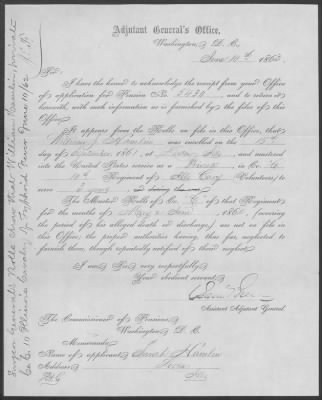 Adjutant General's Office,
Washington, D. C.
June 14th, 1862
Sir:
I have the honor to acknowledge the receipt from your Office
of application for Pension No. 5430, and to return it
herewith, with such information as is furnished by the files of this
Office.
It appears from the Rolls on file in this Office, that
William Hamlin was enrolled on the 15th
day of September, 1861, at , Ills, and mustered
into the United States service as a Private in Co. C.
10th Regiment of Ills Cavy Volunteers, to
serve 3 years, or during the war.
The Muster Rolls of Co. C of that Regiment
for the months of May & June, 1862, (covering
the period of his alleged death or discharge,) are not on file in
this Office; the proper authorities having, thus far, neglected to
furnish them, though repeatedly notified of their neglect.
I am Sir, very respectfully,
Your obedient servant,
Assistant Adjutant General.
The Commissioner of Pensions,
Washington D. C.
Memoranda.
Name of applicant, Sarah Hamlin
Address,
Ills
Surgeon General's Rolls show that William Hamlin, private
Co. C. 10 Illinois Cavalry, d. Typhoid Fever June 11/62